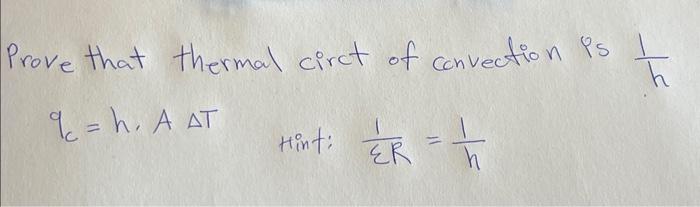 Prove that thermal circt of convection is 1/h
q_c = h. A ΔT
Hint: 1/ΣR = 1/h